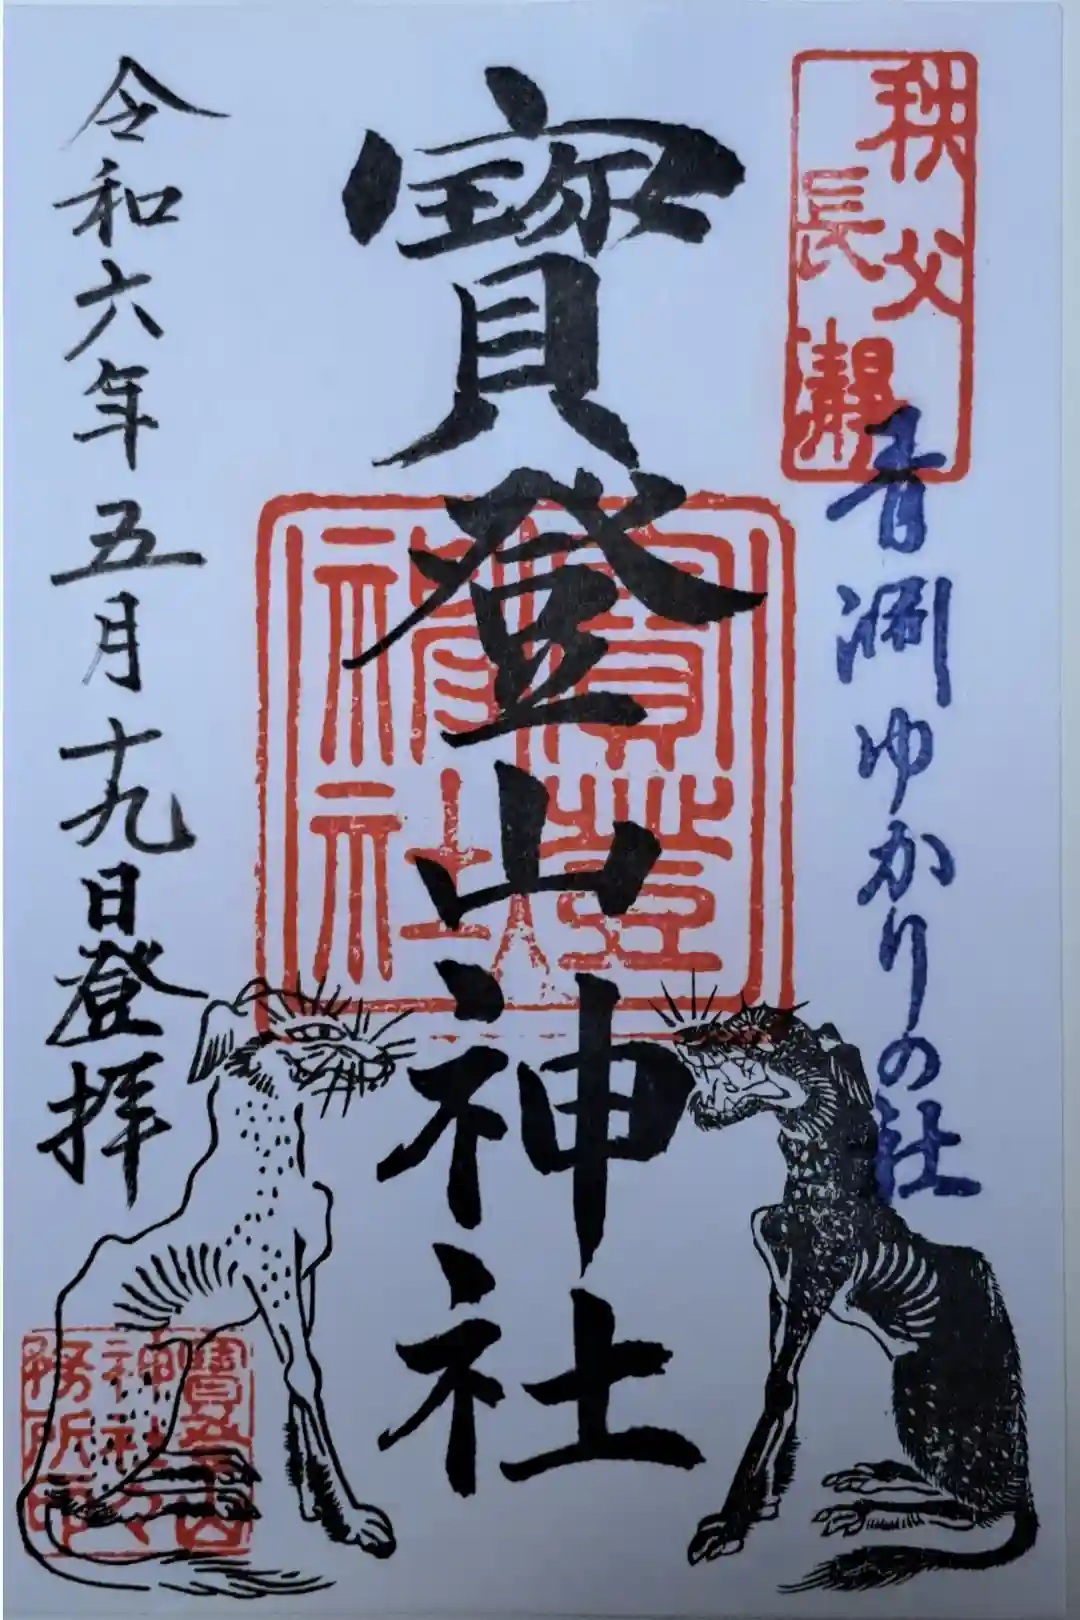 秩父
長瀞
青淵ゆかりの社
寳登山神社
令和六年五月十九日登拝
寳登山
神社社
務所印